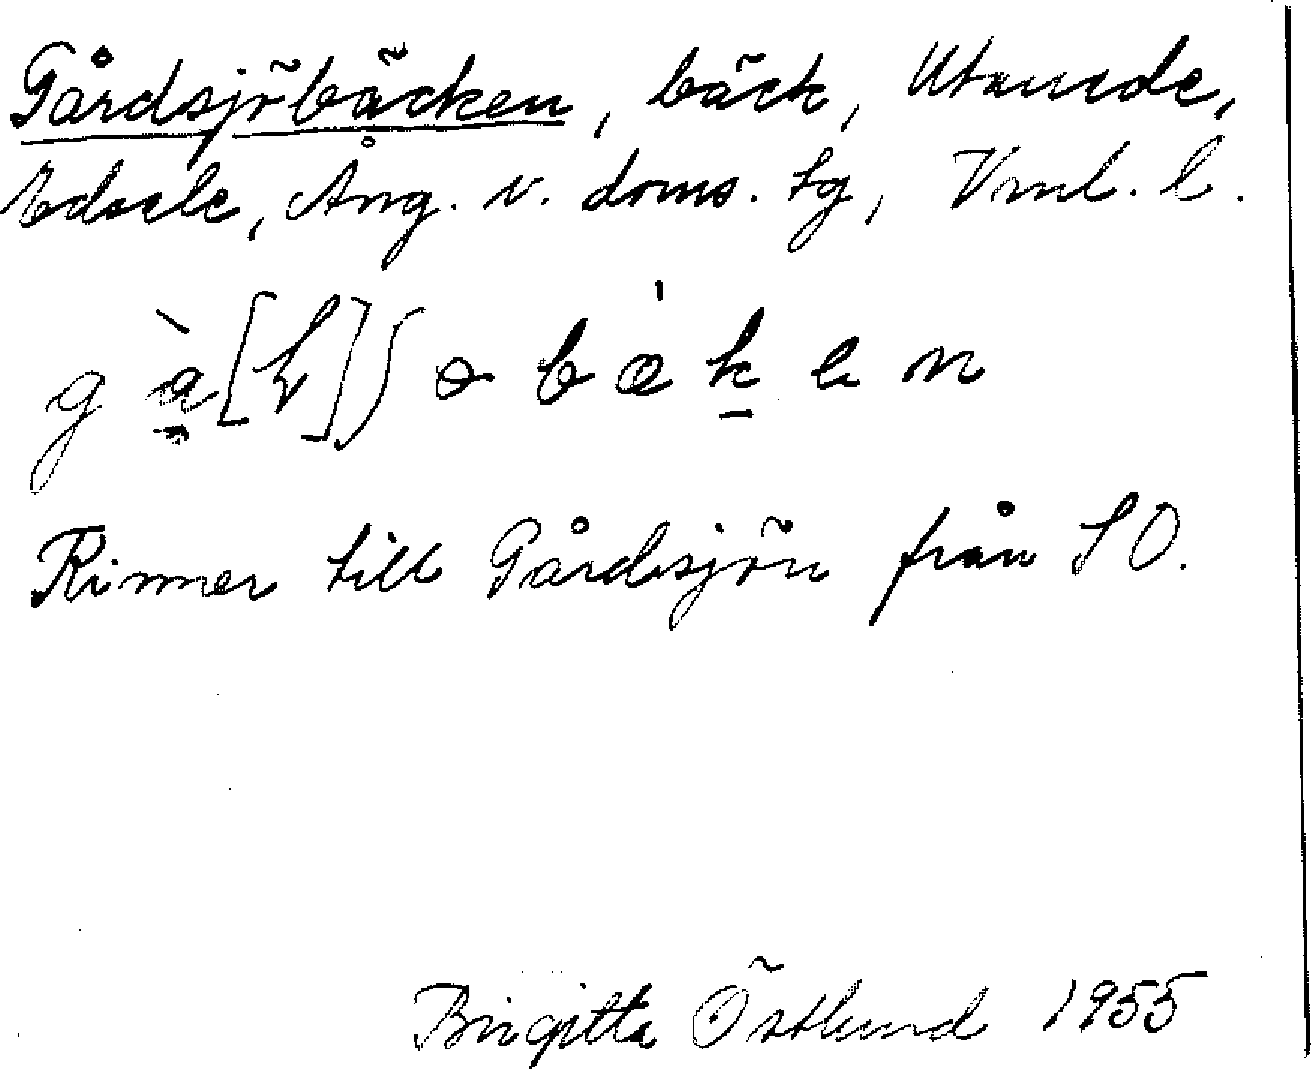 Gårdsjöbäcken, bäck, Utanede,
Edsele, Ång. v. doms. tg, Vnl. l.
Rinner till Gårdsjön från SO.
Birgitta Östlund 1955